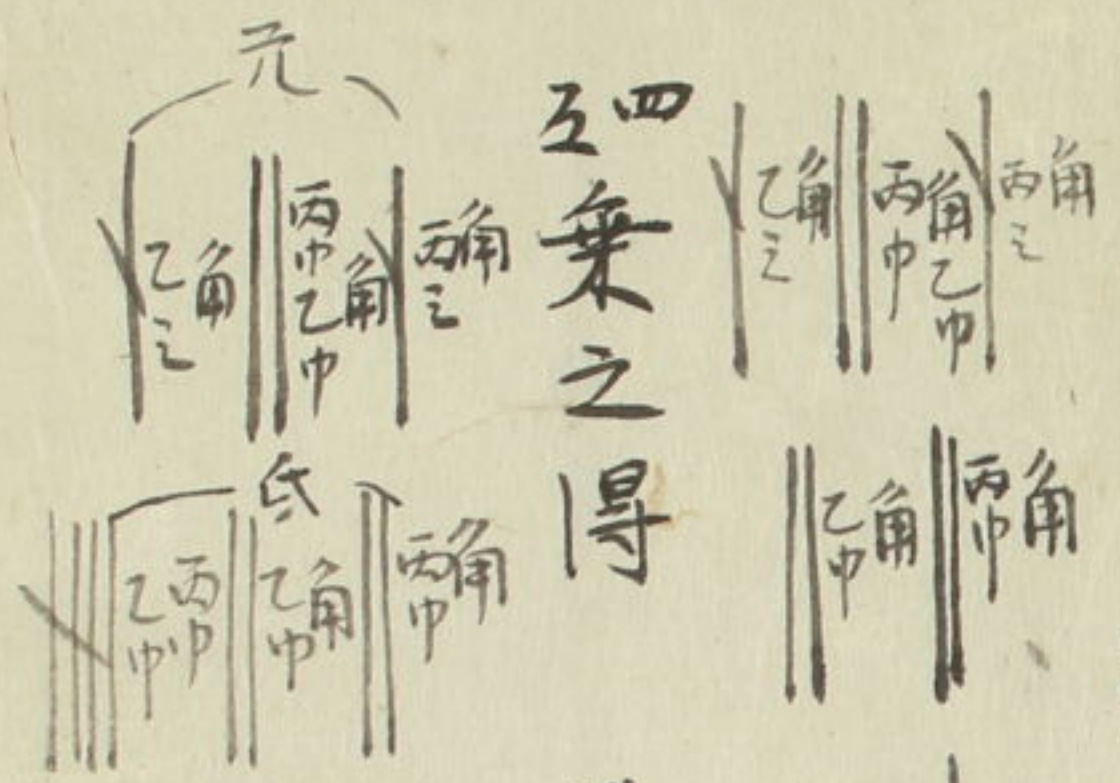 角
丙三
角乙巾
丙巾
角
乙三
角
丙巾
角
乙巾
四
互乗之得
亢
角
丙三
角
丙巾乙巾
角
乙三
氐
角
丙巾
角
乙巾
丙巾
乙巾